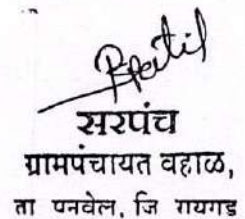 Patil
सरपंच
ग्रामपंचायत वहाळ,
ता पनवेल, जि रायगड